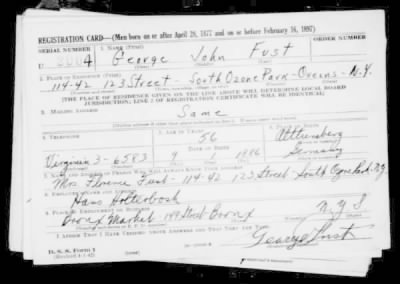 REGISTRATION CARD—(Men born on or after April 28, 1877 and on or before February 16, 1897)
SERIAL NUMBER 1. NAME (Print) ORDER NUMBER
U George John Fust
(First) (Middle) (Last)
2. PLACE OF RESIDENCE (Print)
114-42 123 Street - South Ozone Park - Queens - N.Y.
[THE PLACE OF RESIDENCE GIVEN ON THE LINE ABOVE WILL DETERMINE LOCAL BOARD
JURISDICTION; LINE 2 OF REGISTRATION CERTIFICATE WILL BE IDENTICAL]
3. MAILING ADDRESS
Same
4. TELEPHONE 5. AGE IN YEARS 6. PLACE OF BIRTH
56
DATE OF BIRTH
Virginia 3-6583 9 1 1886 Germany
7. NAME AND ADDRESS OF PERSON WHO WILL ALWAYS KNOW YOUR ADDRESS
Mrs Florence Fust - 114-42 123 Street South Ozone Park, N.Y.
8. EMPLOYER'S NAME AND ADDRESS
Hans Holterbosch
9. PLACE OF EMPLOYMENT OR BUSINESS
Bronx Market 149 Street Bronx N.Y.S
I AFFIRM THAT I HAVE VERIFIED ABOVE ANSWERS AND THAT THEY ARE TRUE.
D. S. S. Form 1
(Revised 4-1-42)
George Fust